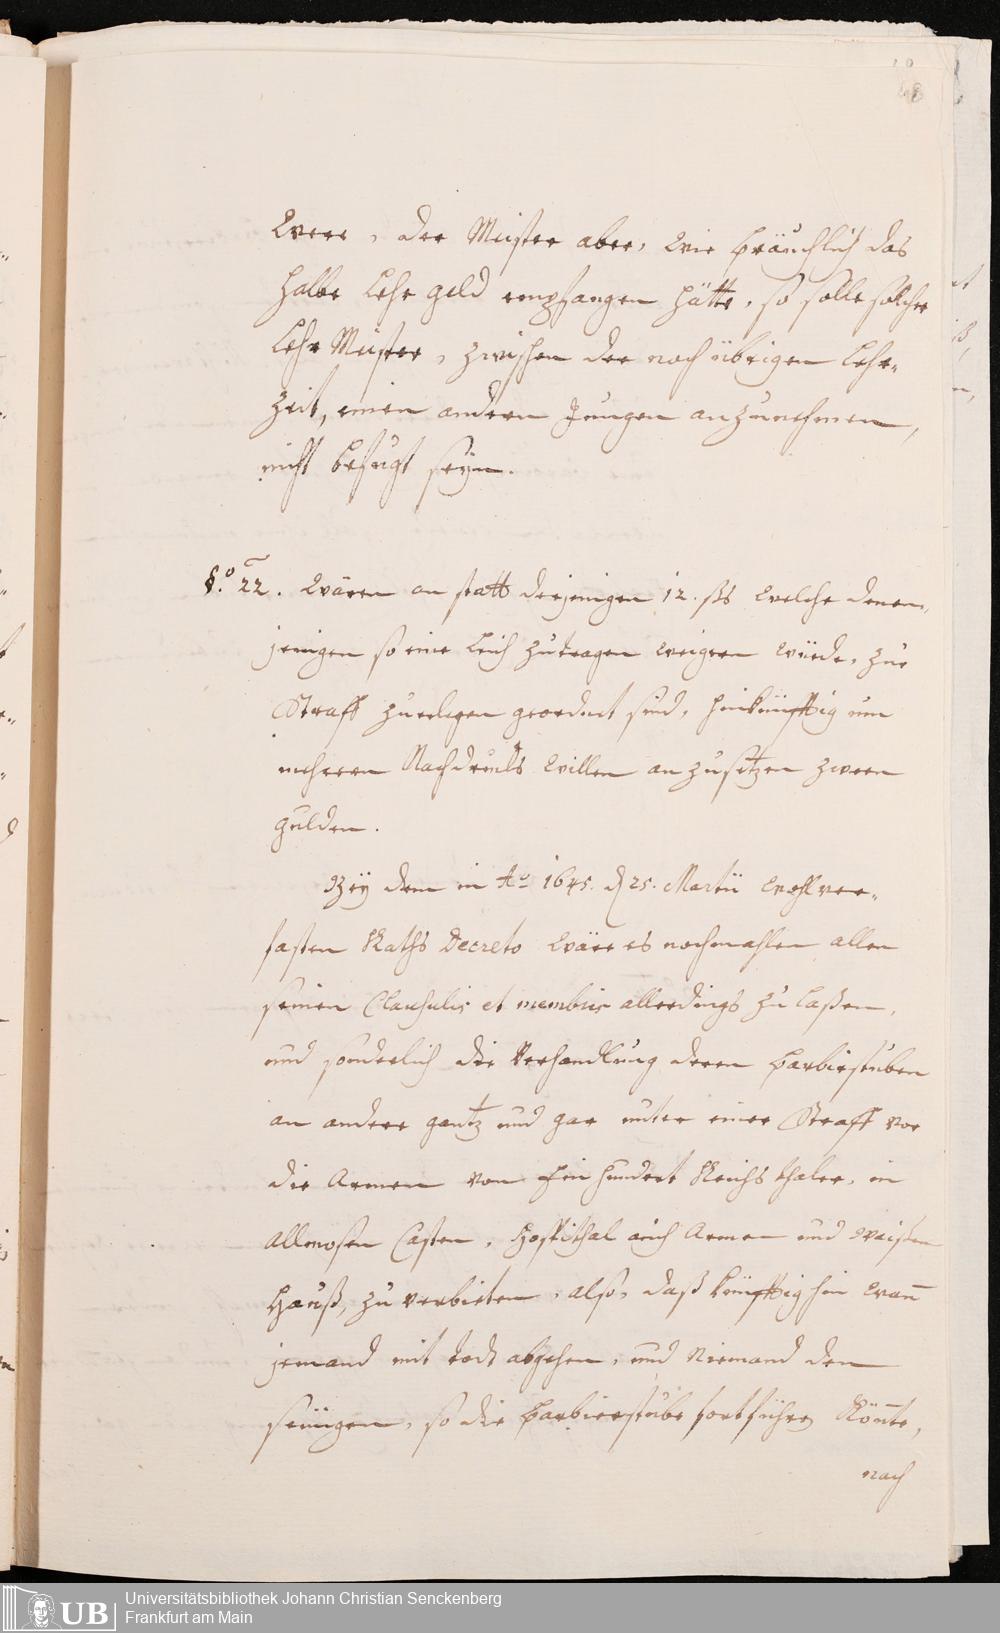 Were, der Meister aber, wie bräuchlich das
halbe Lehr geld empfangen hätte, so solle solcher
Lehr Meister, zwischen der noch übrigen Lehr-
zeit, einen andern Jungen anzunehmen,
nicht befugt seyn.
§.º 22. Wären an statt derjenigen 12. ßs welche denen-
jenigen so eine Leich zutragen weigern würde, zur
Straff zuerlegen geordnet sind, hinkünfftig um
mehrern Nachdrucks willen anzusetzen zween
gulden.
Bey dem in Aº 1645. d 25. Martii wohl ver-
fasten Raths Decreto wäre es nochmahlen allen
seinen Clausulis et membris allerdings zu laßen,
und sonderlich die Verhandlung deren barbierstuben
an andere gantz und gar unter einer Straff vor
die Armen von Ein hundert Reichs thaler, in
Allmosen Casten, Hospithal auch Armen und Waißen
Hauß, zu verbieten, also, daß künfftighin wan̄
jemand mit todt abgehen, und Niemand den
seinigen, so die barbierstube fortführen Kön̄te,
nach
Universitätsbibliothek Johann Christian Senckenberg
Frankfurt am Main
UB